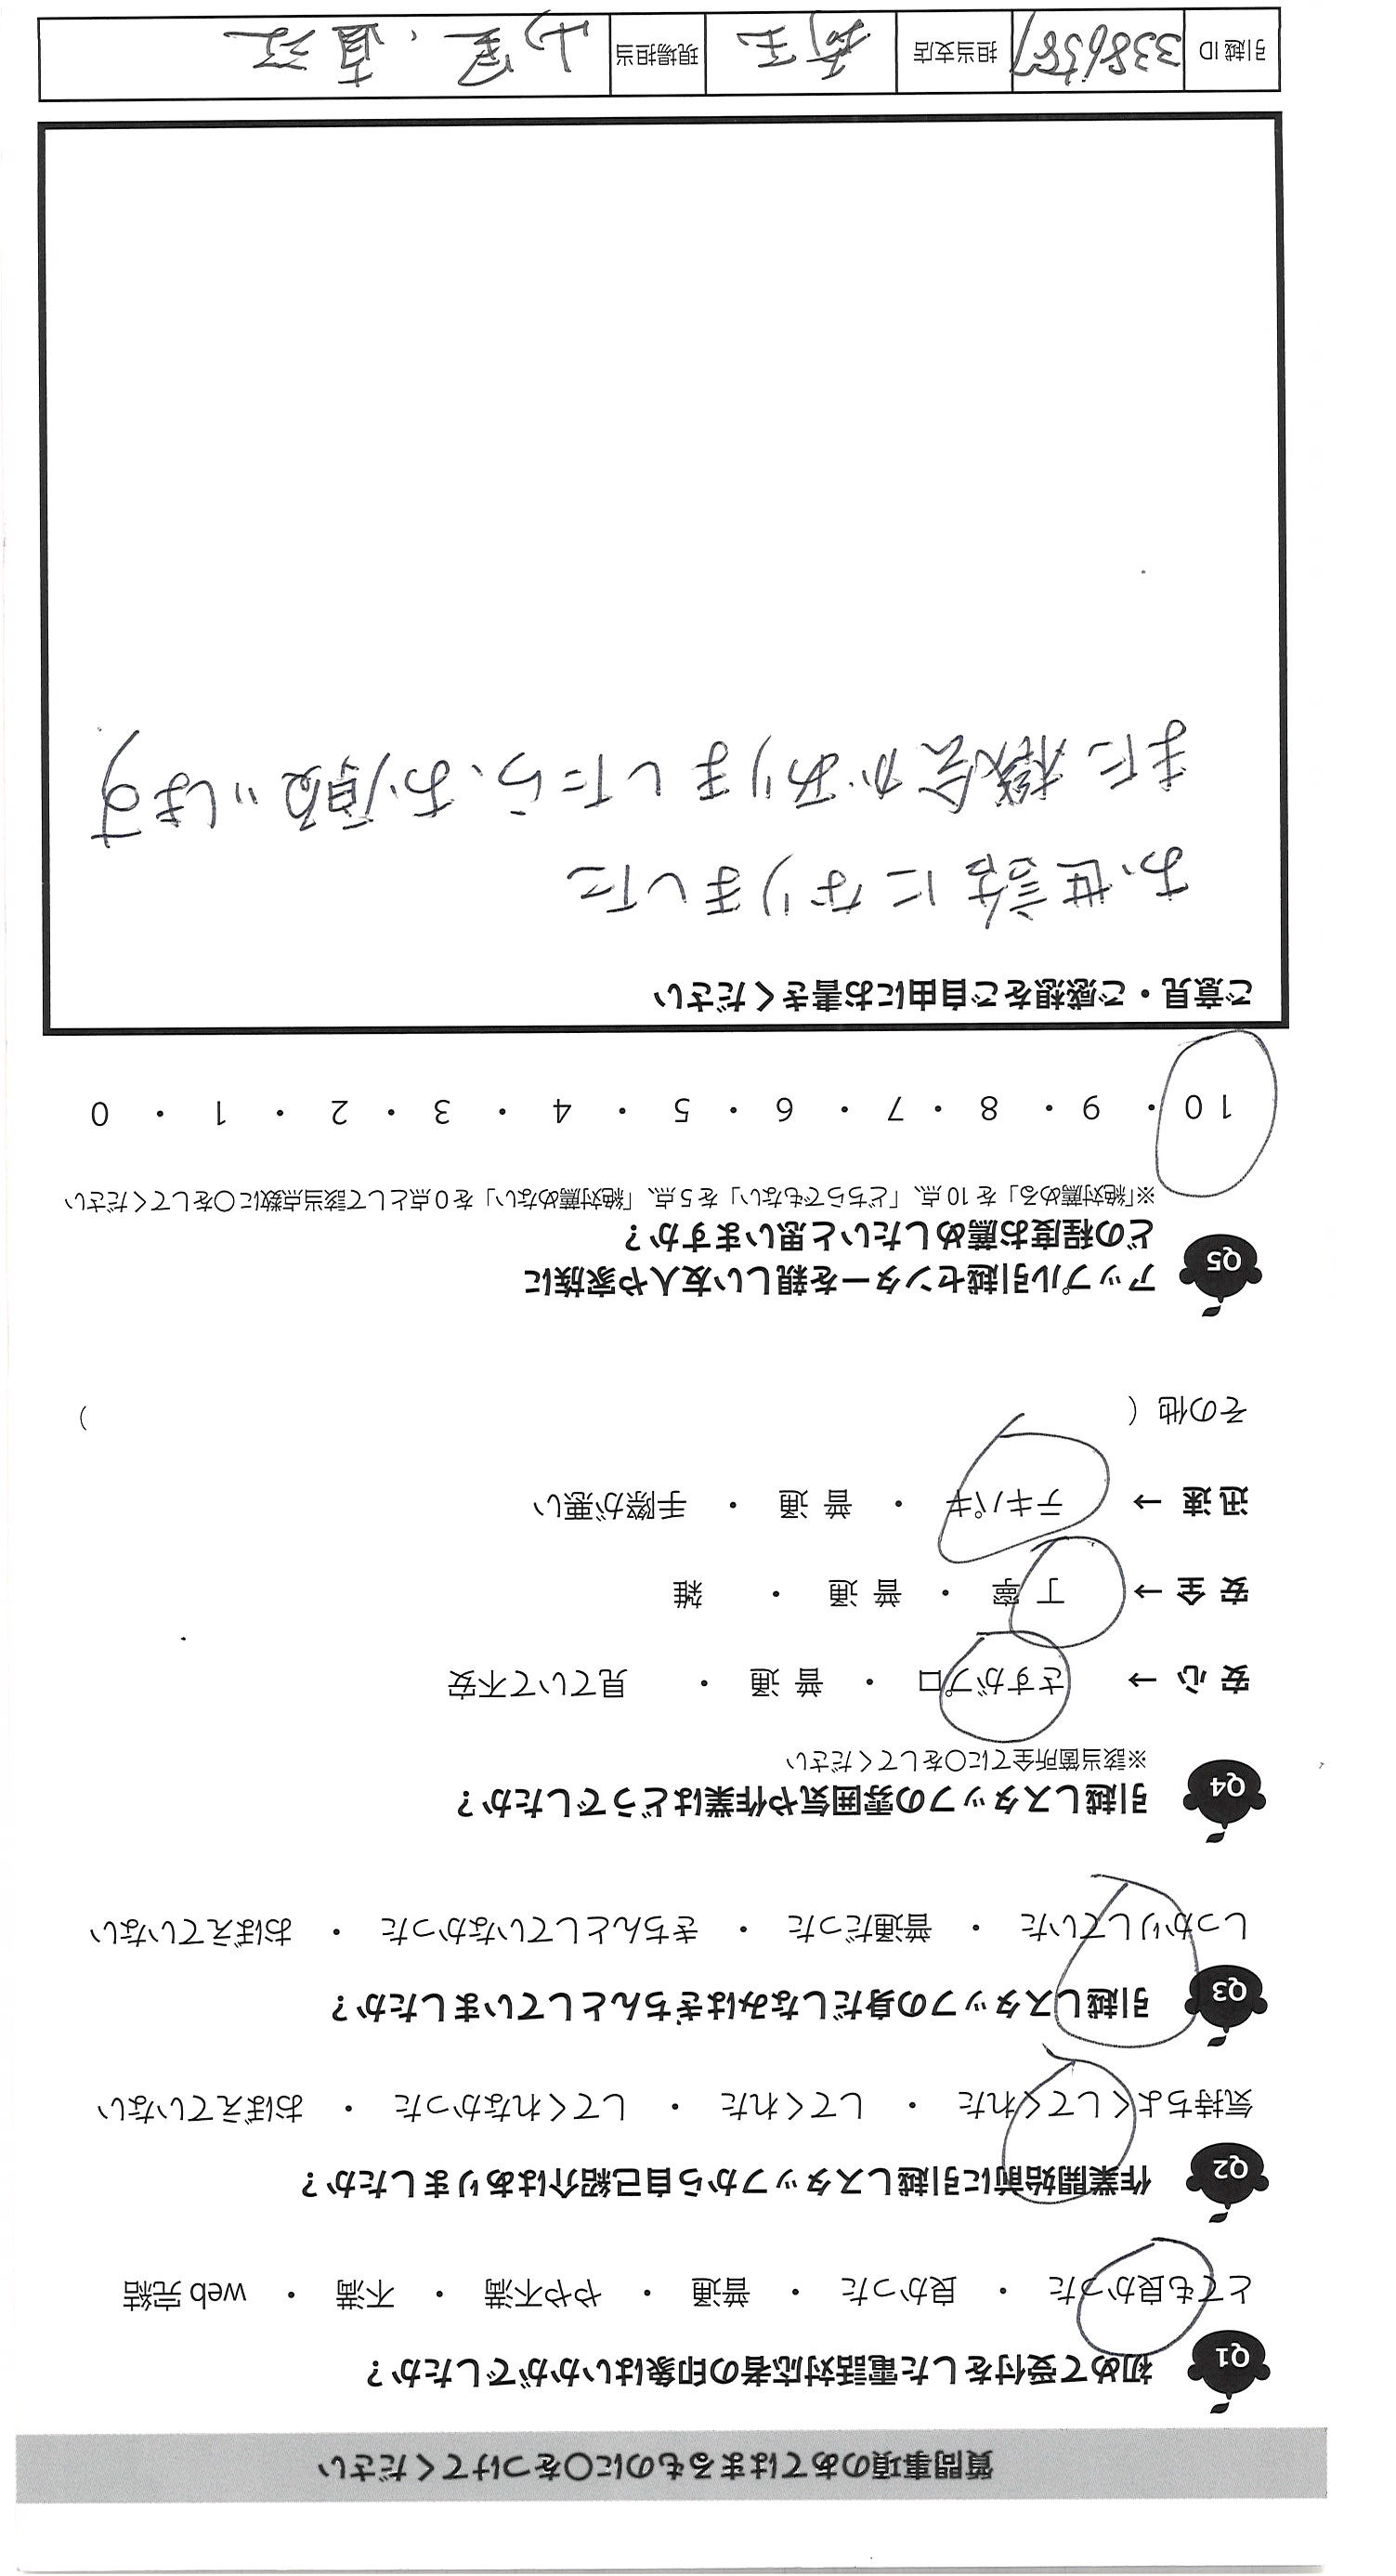 質問事項のあてはまるものに〇をつけてください
Q1 初めて受付をした電話対応者の印象はいかがでしたか？
とても良かった ・ 良かった ・ 普通 ・ やや不満 ・ 不満 ・ web 完結
Q2 作業開始前に引越しスタッフから自己紹介はありましたか？
気持ちよくしてくれた ・ してくれた ・ してくれなかった ・ おぼえていない
Q3 引越しスタッフの身だしなみはきちんとしていましたか？
しっかりしていた ・ 普通だった ・ きちんとしていなかった ・ おぼえていない
Q4 引越しスタッフの雰囲気や作業はどうでしたか？
※該当箇所全てに〇をしてください
安 心 → さすがプロ ・ 普 通 ・ 見ていて不安
安 全 → 丁 寧 ・ 普 通 ・ 雑
迅 速 → テキパキ ・ 普 通 ・ 手際が悪い
その他 （ ）
Q5 アップル引越センターを親しい友人や家族に
どの程度お薦めしたいと思いますか？
※「絶対薦める」を 10 点、「どちらでもない」を 5 点、「絶対薦めない」を 0 点として該当点数に〇をしてください
10 ・ 9 ・ 8 ・ 7 ・ 6 ・ 5 ・ 4 ・ 3 ・ 2 ・ 1 ・ 0
ご意見・ご感想をご自由にお書きください
お世話になりました
また機会がありましたら、お願いします
引越 ID 担当支店 埼玉 現場担当